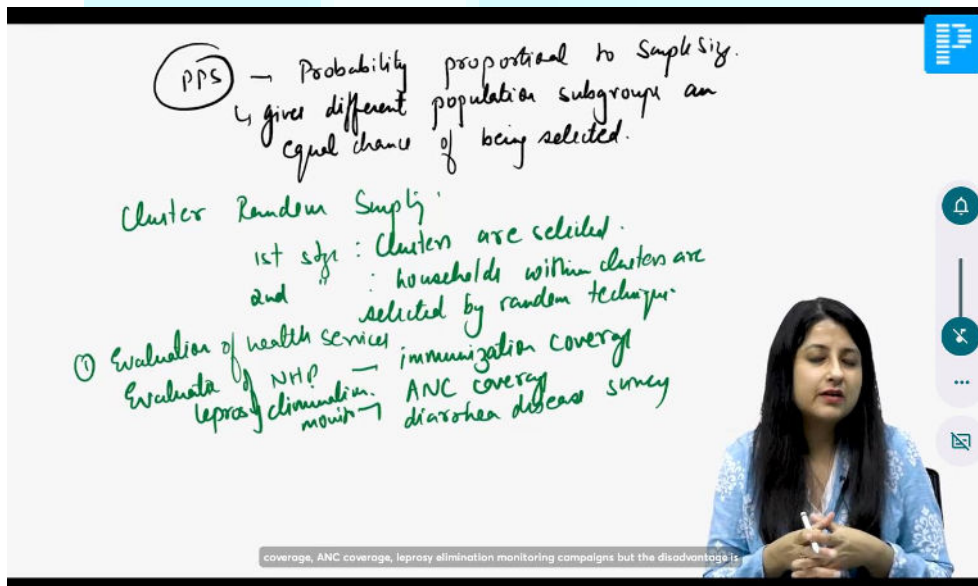 PPS → Probability proportional to Sample Size.
↳ gives different population subgroups an
equal chance of being selected.
Cluster Random Sampling.
1st stge : Clusters are selected.
2nd " : households within clusters are
selected by random technique.
① Evaluation of health services
Evaluate of NHP — immunization coverage
leprosy elimination. ANC coverage
monitr → diarrohea disease survey
coverage, ANC coverage, leprosy elimination monitoring campaigns but the disadvantage is